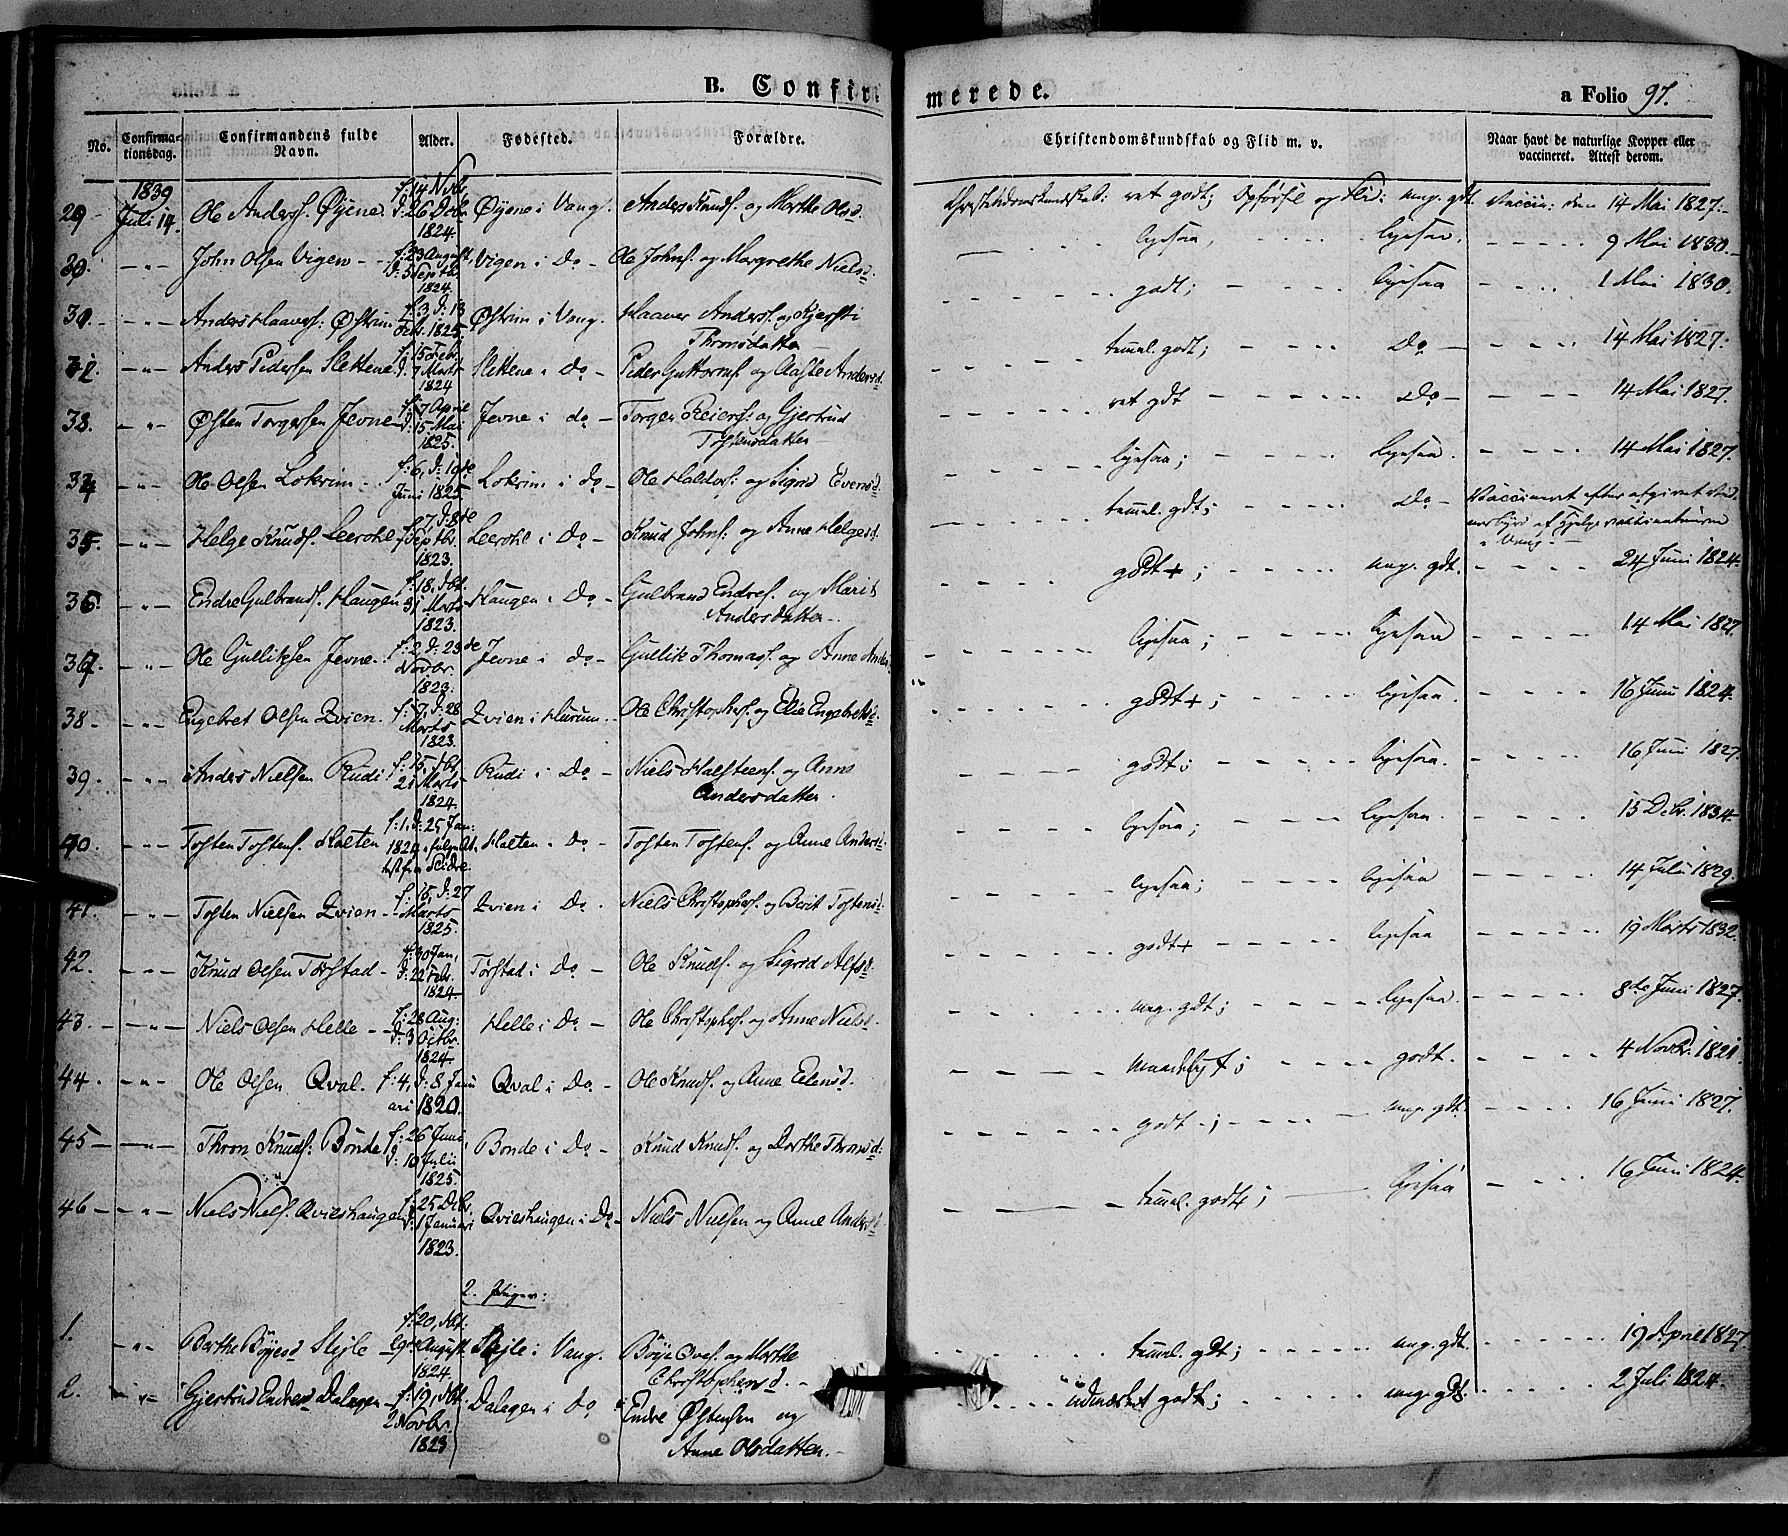 B. Confirmerede.
a Folio 97.
No. Confirma-tionsdag. Confirmandens fulde Navn. Alder. Fødested. Forældre. Christendomskundskab og Flid m. v. Naar havt de naturlige Kopper eller vaccineret. Attest derom.
1839
29 Juli 14. Ole Anderss. Øyene. f: 14 Novbr. d: 26 Decbr. 1824. Øyene i Vang. Anders Knuds. og Marthe Olsd. Christendomskundskab: ret godt; Opførsel og Flid: meg. gdt. Vaccin: den 14 Mai 1827.
30. John Olsen Vigen f: 23 August, d: 5 Septbr. 1824. Vigen i Do Ole Johns. og Margrethe Nielsd. ligesaa, ligesaa. 9 Mai 1830.
Anders Haavers: Østrim f. 3, d: 13 Octr. 1825. Østrim i Vang. Haaver Anders. og Kjersti Thronsdatter godt; ligesaa 1 Mai 1830.
32. Anders Pedersen Slettene. f: 15 Febr. d. 7 Marts 1824 Slettene i Do Peder Guttorms. og Aaste Andersd. temmel. godt; Do 14 Mai 1827.
33. Østen Torgersen Jevne f: 7 April d: 15 Mai 1825. Jevne i do Torger Reiers: og Gjertrud Tostensdatter ret gdt Do 14 Mai 1827.
34 Ole Olsen Lokrim f: 6, d: 19de Juni 1825 Lokrim i do Ole Haldors: og Sigrid Evensd. ligesaa; ligesaa. 14 Mai 1827.
35. Helge Knuds. Leerohl f. 7, d: 8de Septbr. 1823. Leerohl i Do Knud Johns: og Anne Helgesd. temmel. gdt; Do Vaccineret efter afgivet af Hjelpevaccinateuren i Vang.
36. Endre Gulbrands. Haugen f. 18. dbt. 31 Marts 1823. Haugen i Do Gulbrand Endres. og Marit Andersdatter. godt+; meg. gdt. 24 Juni 1824.
37 Ole Gulliksen Jevne. f: 2 d: 23de Novbr. 1823. Jevne i do Gullik Thomass. og Anne Anders ligesaa; ligesaa 14 Mai 1827.
38 Engebret Olsen Qvien. f: 7, d: 28 Marts 1823. Qvien i Hurum. Ole Christophers. og Elie Engebretsd. godt+; ligesaa. 16 Juni 1824.
39 Anders Nielsen Rudi f: 15, dbt. 21 Marts 1824. Rudi i Do Niels Halsteens. og Anne Andersdatter. godt; ligesaa. 16 Juni 1827.
40 Tosten Tostens. Haeten f: 1, d: 25 Jan: 1824, ifølge Attest fra Slidre. Haeten i Do Tosten Tostens. og Anne Andersd. ligesaa; ligesaa. 15 Decbr. 1834.
41. Tosten Nielsen Qvien f: 15, d: 27 Marts 1825. Qvien i Do. Niels Christophers. og Berit Tostensd. ligesaa; ligesaa 14 Juli 1829.
42. Knud Olsen Tørstad f: 30 Jan, d: 22 Feb. 1824. Tørstad i Do Ole Knuds. og Sigrid Alfsd. godt+ ligesaa 19 Marts 1832.
43. Niels Olsen Helle f: 28 Aug: d: 3 Octbr. 1824. Helle i Do Ole Christophers. og Anne Nielsd. meg. gdt; ligesaa. 8de Juni 1827.
44. Ole Olsen Qval. f: 4, d: 8 Januari 1820. Qval i Do Ole Knuds. og Anne Eilensd. maadeligt; godt. 4 Novbr. 1821.
45 Thron Knuds: Bønde f: 26 Juni, d: 10 Julii 1825. Bonde i Do Knud Knuds. og Dorthe Thronsd: godt; meg. gdt. 16 Juni 1827.
46 Niels Niels. Qvieshaugen f: 25 Dcbr. d: 1 Januari 1823. Qvieshaugen i Do Niels Nielsen og Anne Andersd temmel. godt; ligesaa 16 Juni 1824.
2. Piger:
1. Berthe Bøyesd Skjle f: 20, dbt: 29 August 1824. Skjle i Vang. Bøye Oves. og Marthe Christophersd. temmel. gdt; meg. gdt. 19 April 1827.
2. Gjertrud Endresd Dalagen f: 19, dbt. 2 Novbr. 1823 Dalagen i Do Endre Østensen og Anne Olsdatter. udmærket godt; meg. gdt. 2 Juli 1824.